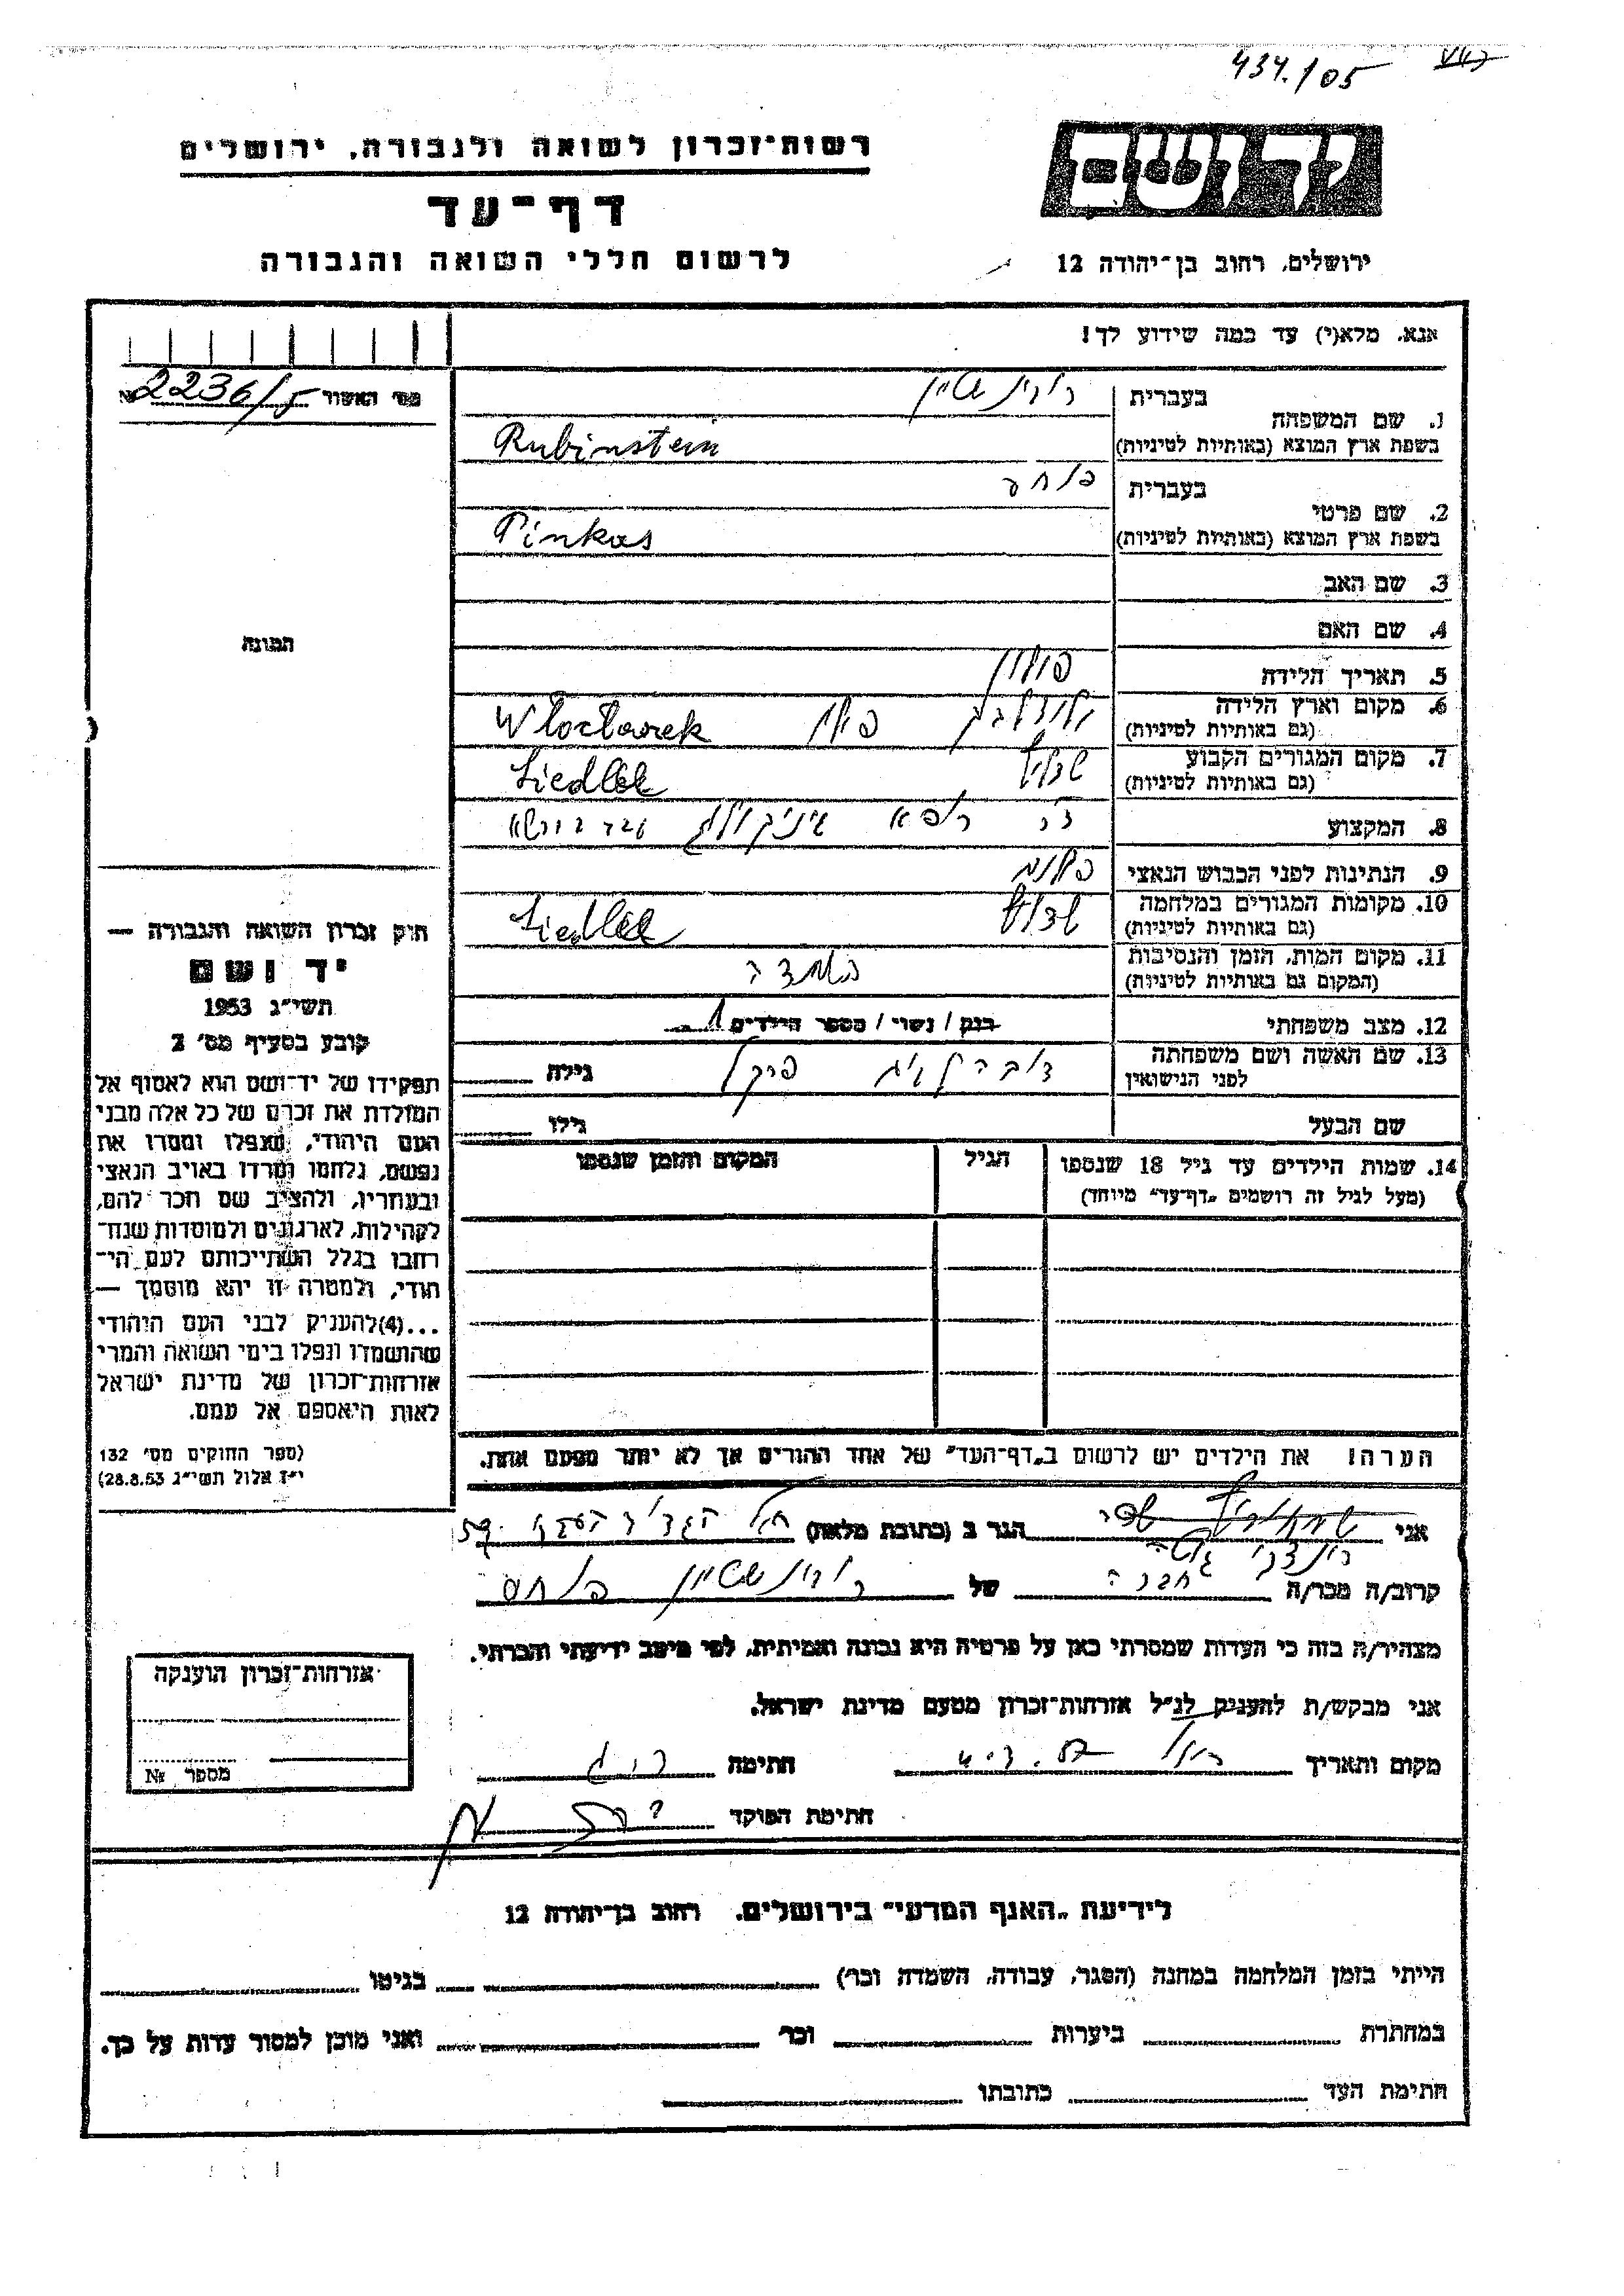 434./05
רשות־זכרון לשואה ולגבורה, ירושלים
יד ושם
דף־עד
לרשום חללי השואה והגבורה
ירושלים, רחוב בן־יהודה 12
אנא, מלא(י) עד כמה שידוע לך!
מס׳ האשור 2236/5 №
1. שם המשפחה
בעברית רובינשטיין
בשפת ארץ המוצא (באותיות לטיניות) Rubinstein
2. שם פרטי
בעברית פנחס
בשפת ארץ המוצא (באותיות לטיניות) Pinkas
3. שם האב
4. שם האם
5. תאריך הלידה פולין
6. מקום וארץ הלידה
(גם באותיות לטיניות) פולין Włocławek
7. מקום המגורים הקבוע
(גם באותיות לטיניות) שדליץ
8. המקצוע ד״ר רופא
9. הנתינות לפני הכבוש הנאצי פולנית
10. מקומות המגורים במלחמה
(גם באותיות לטיניות) שדליץ
11. מקום המות, הזמן והנסיבות
(המקום גם באותיות לטיניות) בהשמדה
12. מצב משפחתי רווק / נשוי / מספר הילדים 1
13. שם האשה ושם משפחתה
לפני הנישואין גילה
שם הבעל גילו
14. שמות הילדים עד גיל 18 שנספו הגיל המקום והזמן שנספו
(מעל לגיל זה רושמים „דף־עד״ מיוחד)
הערה! את הילדים יש לרשום ב„דף־העד״ של אחד ההורים אך לא יותר מפעם אחת.
התמונה
חוק זכרון השואה והגבורה —
יד ושם
תשי״ג 1953
קובע בסעיף מס׳ 2
תפקידו של יד־ושם הוא לאסוף אל
המולדת את זכרם של כל אלה מבני
העם היהודי, שנפלו ומסרו את
נפשם, נלחמו ומרדו באויב הנאצי
ובעוזריו, ולהציב שם וזכר להם,
לקהילות, לארגונים ולמוסדות שנח־
רבו בגלל השתייכותם לעם הי־
הודי, ולמטרה זו יהא מוסמך —
...(4)להעניק לבני העם היהודי
שהושמדו ונפלו בימי השואה והמרי
אזרחות־זכרון של מדינת ישראל
לאות היאספם אל עמם.
(ספר החוקים מס׳ 132
י״ז אלול תשי״ג 28.8.53)
אני הגר ב (כתובת מלאה)
קרוב/ה מכר/ה של רובינשטיין פנחס
מצהיר/ה בזה כי העדות שמסרתי כאן על פרטיה היא נכונה ואמיתית, לפי מיטב ידיעתי והכרתי.
אני מבקש/ת להעניק לנ״ל אזרחות־זכרון מטעם מדינת ישראל.
מקום ותאריך חתימה
חתימת הפוקד
אזרחות־זכרון הוענקה
מספר №
לידיעת „האגף המדעי״ בירושלים, רחוב בן־יהודה 12
הייתי בזמן המלחמה במחנה (הסגר, עבודה, השמדה וכר׳) בגיטו
במחתרת ביערות וכר׳ ואני מוכן למסור עדות על כך.
חתימת העד כתובתו